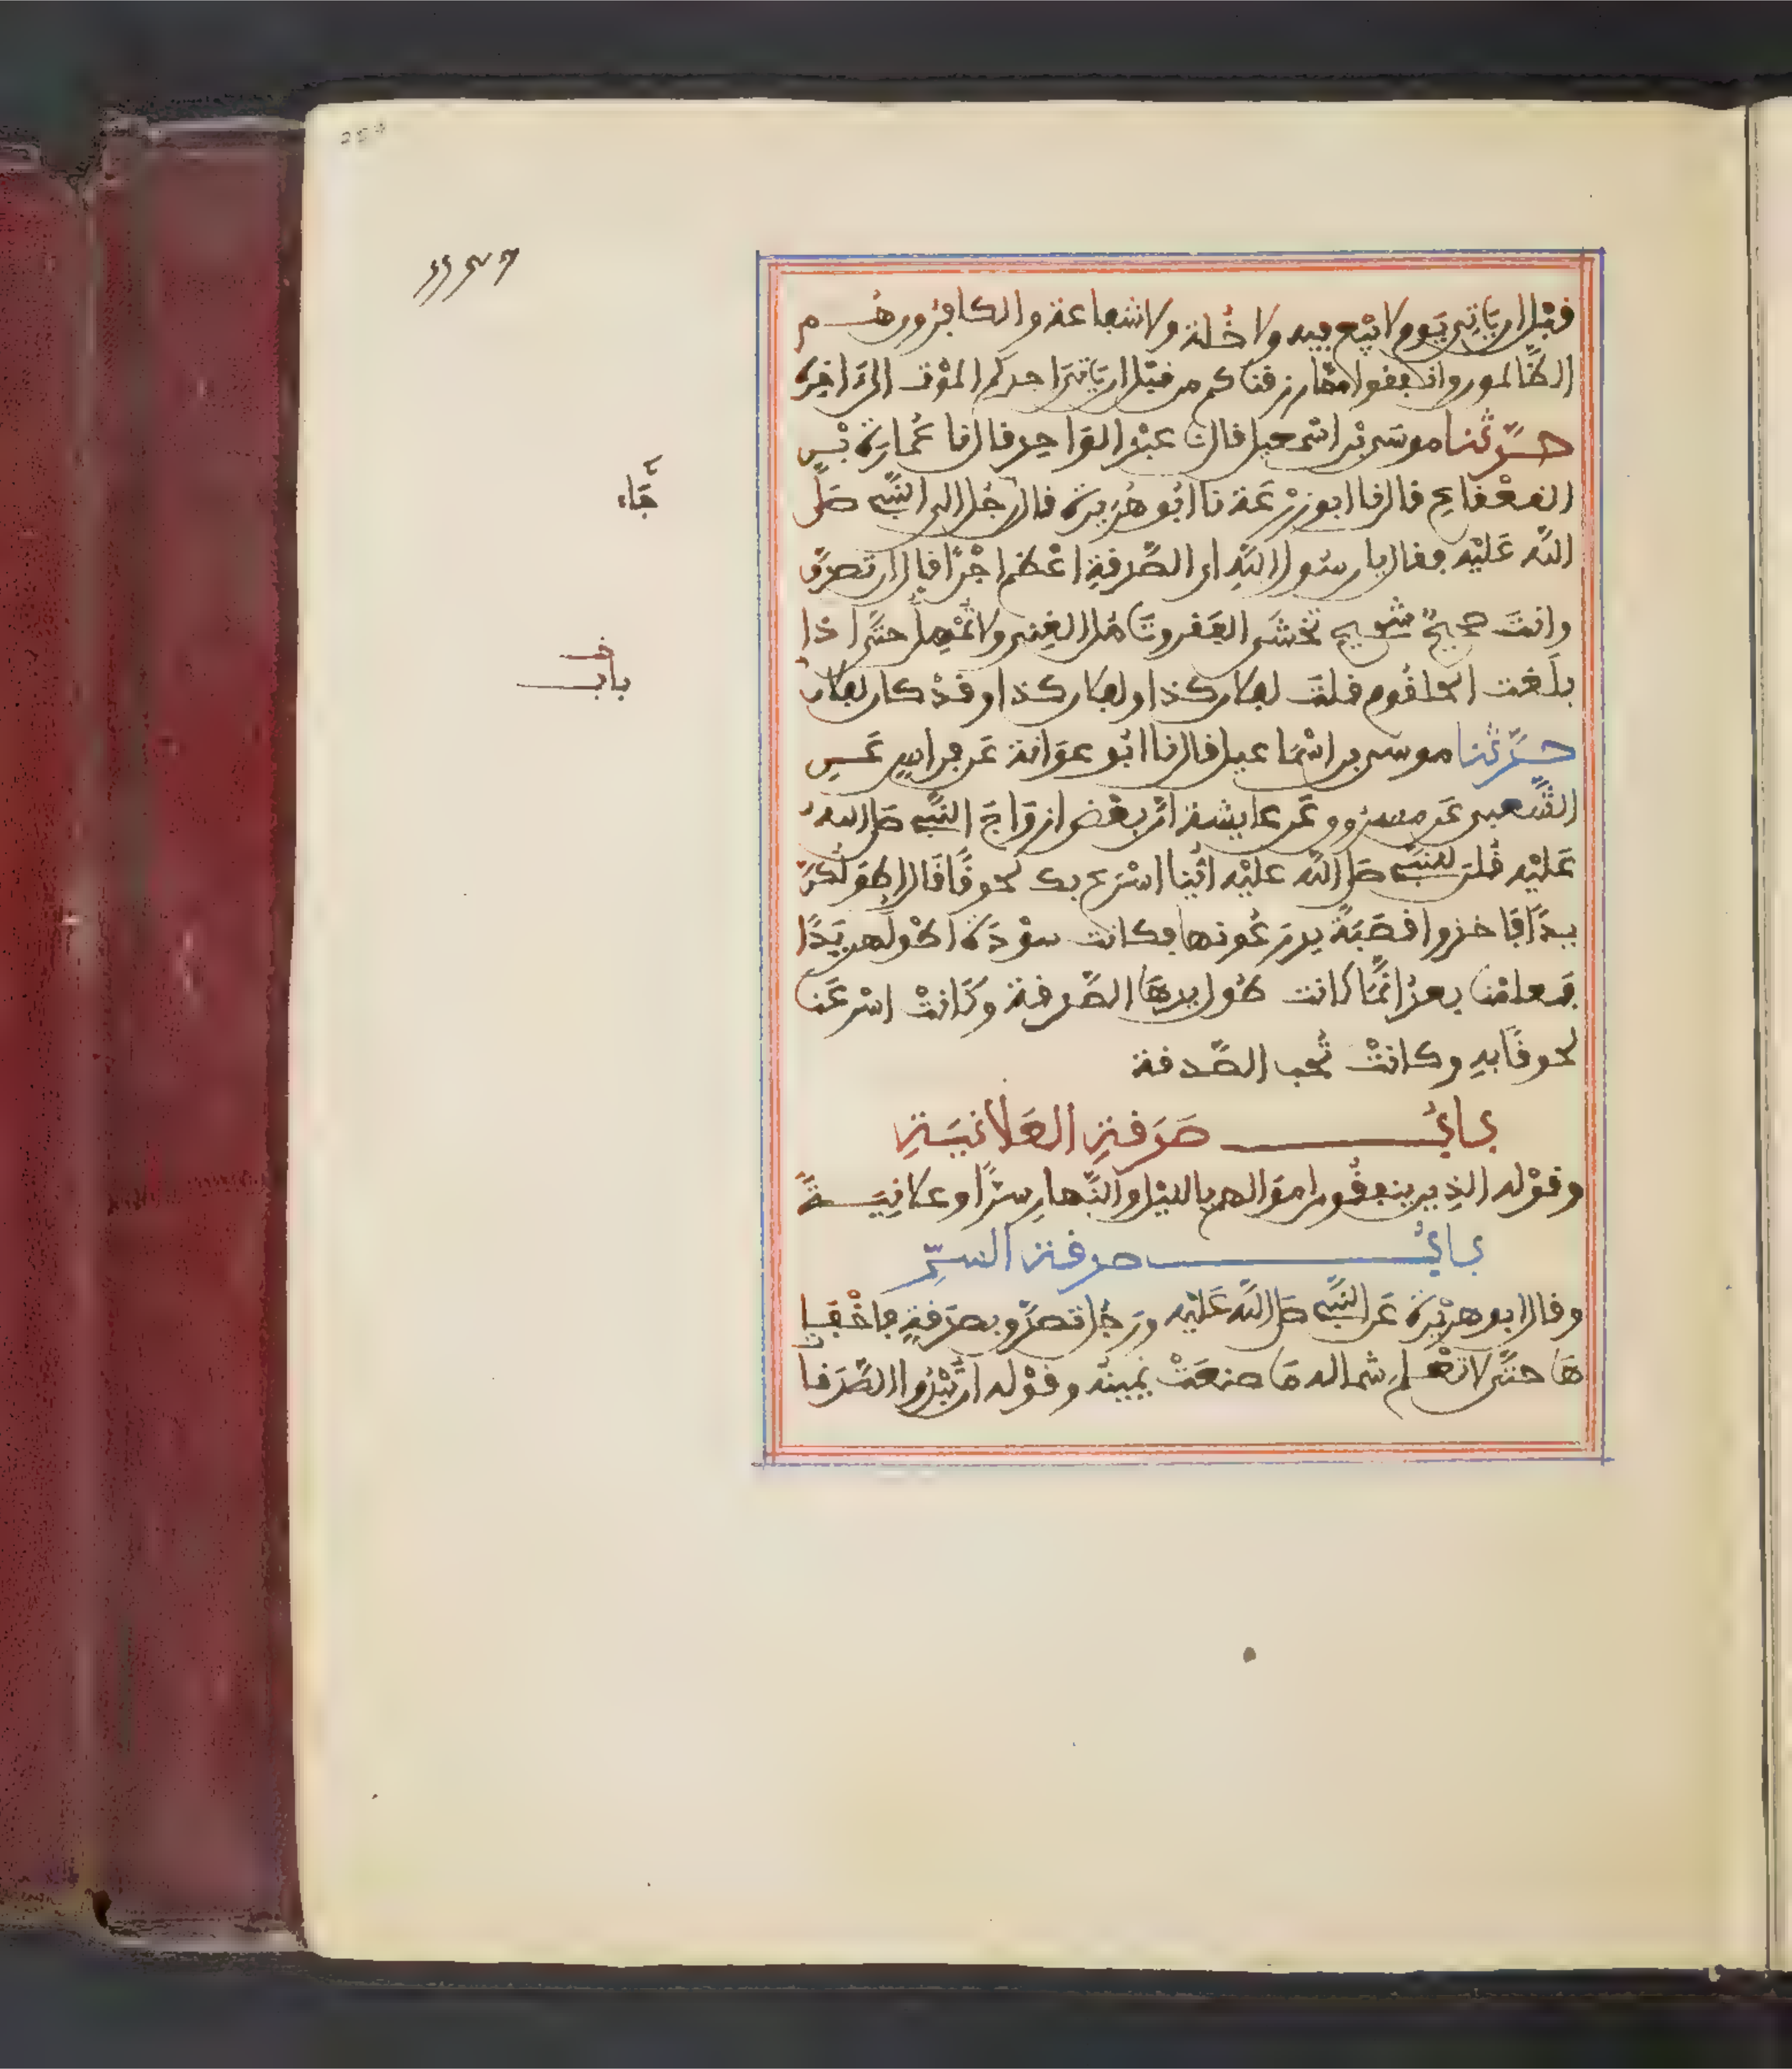 قبل ان ياتي يوم لا بيع فيه ولا خلة ولا شفاعة والكافرون هم
الظالمون وانفقوا مما رزقناكم من قبل ان ياتي احدكم الموت الى ءاخره
حدثنا موسى بن اسمعيل قال نا عبد الواحد قال نا عمارة بن
القعقاع قال نا ابو زرعة نا ابو هريرة قال رجل الى النبي صلى
الله عليه فقال يا رسول الله اي الصدقة اعظم اجرا قال ان تصدق
وانت صحيح شحيح تخشى الفقر وتامل الغنى ولا تمهل حتى اذا
بلغت الحلقوم قلت لفلان كذا ولفلان كذا وقد كان لفلان
حدثنا موسى بن اسماعيل قال نا ابو عوانة عن فراس عن
الشعبي عن مسروق عن عايشة ان بعض ازواج النبي صلى الله
عليه قلن للنبي صلى الله عليه اينا اسرع بك لحوقا قال اطولكن
يدا فاخذوا قصبة يذرعونها فكانت سودة اطولهن يدا
فعلمنا بعد انما كانت طول يدها الصدقة وكانت اسرعنا
لحوقا به وكانت تحب الصدقة
باب صدقة العلانية
وقوله الذين ينفقون اموالهم بالليل والنهار سرا وعلانية
باب صدقة السر
وقال ابو هريرة عن النبي صلى الله عليه ورجل تصدق بصدقة فاخفا
ها حتى لا تعلم شماله ما صنعت يمينه وقوله ان تبدوا الصدقا
جاء
باب